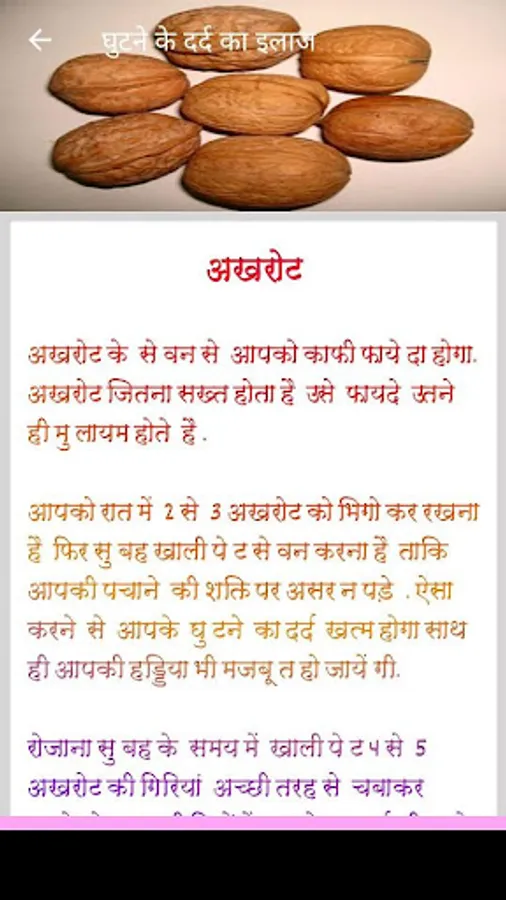 घुटने के दर्द का इलाज
अखरोट
अखरोट के से वन से आपको काफी फाये दा होगा.
अखरोट जितना सख्त होता है उसे फायदे उतने
ही मु लायम होते है .
आपको रात में 2 से 3 अखरोट को भिगो कर रखना
है फिर सु बह खाली पे ट से वन करना है ताकि
आपकी पचाने की शक्ति पर असर न पड़े . ऐसा
करने से आपके घु टने का दर्द खत्म होगा साथ
ही आपकी हड्डिया भी मजबू त हो जायें गी.
रोजाना सु बह के समय में खाली पे ट 4 से 5
अखरोट की गिरियां अच्छी तरह से चबाकर